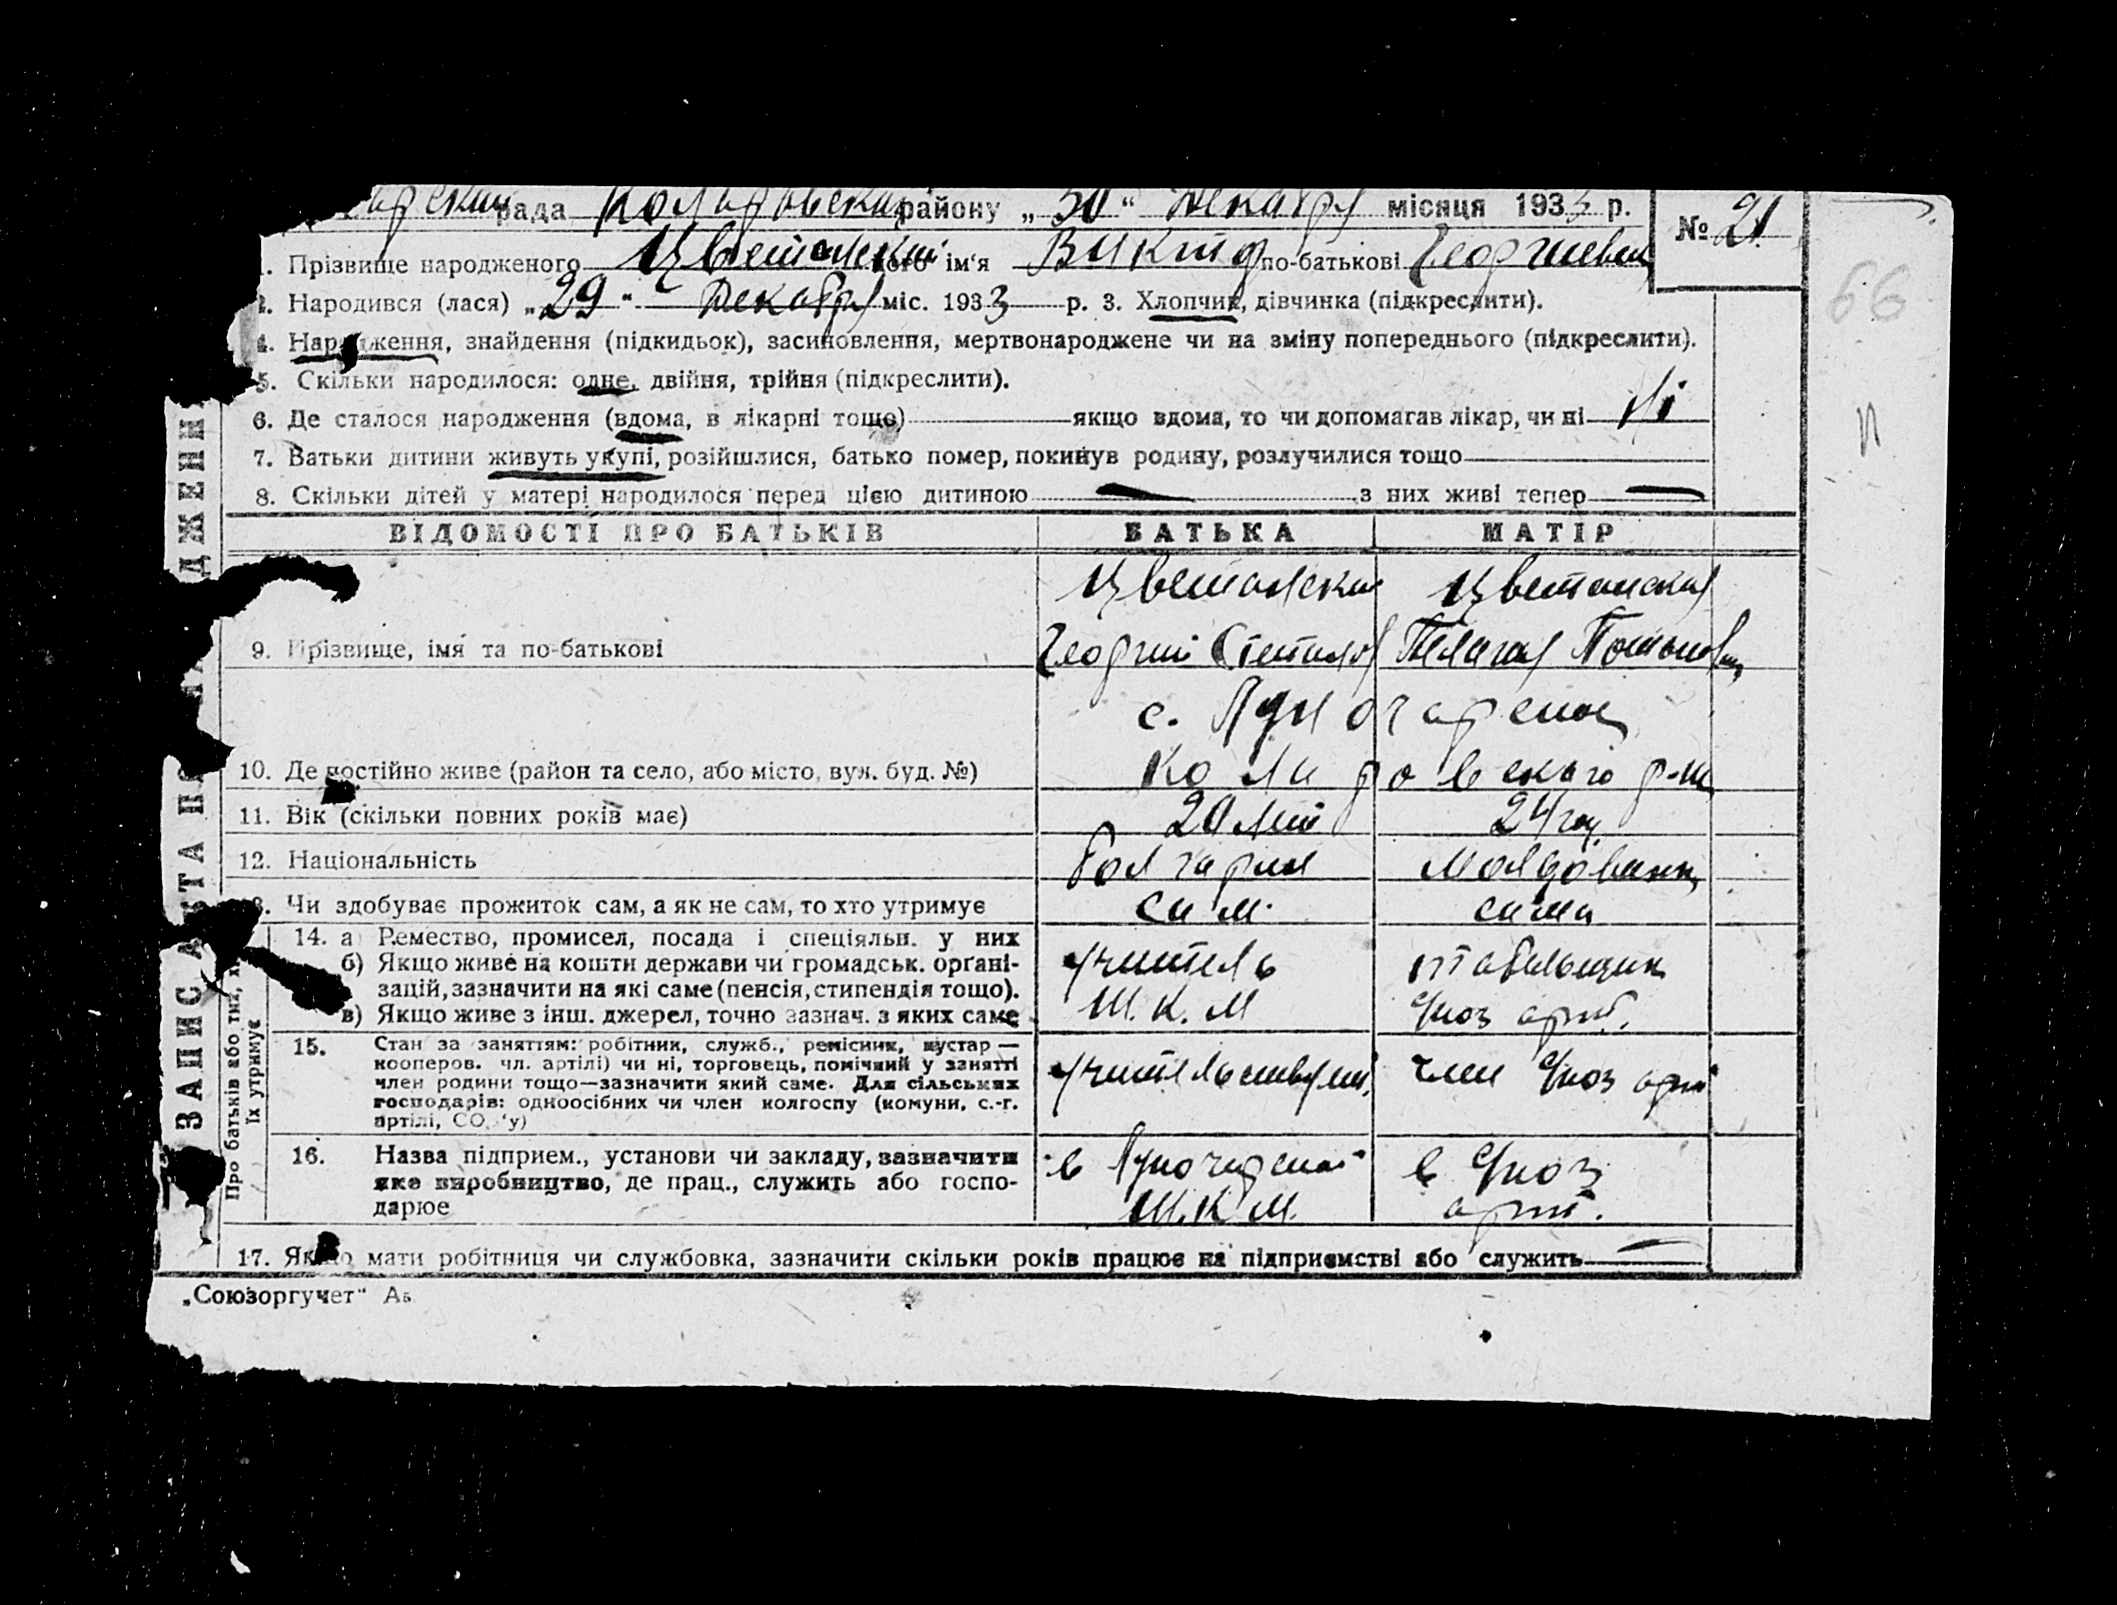 рада Коларовская району „30“ Декабря місяця 1933 р. № 21
1. Прізвище народженого Цветанский його ім‘я Виктор по-батькові Георгиевич
66
2. Народився (лася) „29“ Декабря міс. 1933 р. 3. Хлопчик, дівчинка (підкреслити).
4. Народження, знайдення (підкидьок), засиновлення, мертвонароджене чи на зміну попереднього (підкреслити).
5. Скільки народилося: одне, двійня, трійня (підкреслити).
6. Де сталося народження (вдома, в лікарні тощо) якщо вдома, то чи допомагав лікар, чи ні Ні
7. Батьки дитини живуть укупі, розійшлися, батько помер, покинув родину, розлучилися тощо
8. Скільки дітей у матері народилося перед цією дитиною — з них живі тепер —
ВІДОМОСТІ ПРО БАТЬКІВ БАТЬКА МАТІР
Цветанский Цветанская
9. Прізвище, імя та по-батькові Георгий Степанов Пелагая
с.
10. Де постійно живе (район та село, або місто, вул. буд. №) Коларовского р-на
11. Вік (скільки повних років має) лет 24 год.
12. Національність болгарин молдованка
13. Чи здобуває прожиток сам, а як не сам, то хто утримує сам. сама
14. а) Ремество, промисел, посада і спеціяльн. у них
б) Якщо живе на кошти держави чи громадськ. орґані-
зацій, зазначити на які саме (пенсія, стипендія тощо).
в) Якщо живе з інш. джерел, точно зазнач. з яких саме
учитель
Ш. К. М
арт.
15. Стан за заняттям: робітник, служб., ремісник, кустар —
кооперов. чл. артілі) чи ні, торговець, помічний у занятті
член родини тощо—зазначити який саме. Для сільських
господарів: одноосібних чи член колгоспу (комуни, с.-г.
артілі, СО у)
член арт
16. Назва підприєм., установи чи закладу, зазначити
яке виробництво, де прац., служить або госпо-
дарює
в
Ш.К.М.
в
арт.
17. Якщо мати робітниця чи службовка, зазначити скільки років працює на підприємстві або служить —
„Союзоргучет“
ЗАПИС
Про батьків або тих, х
їх утримує